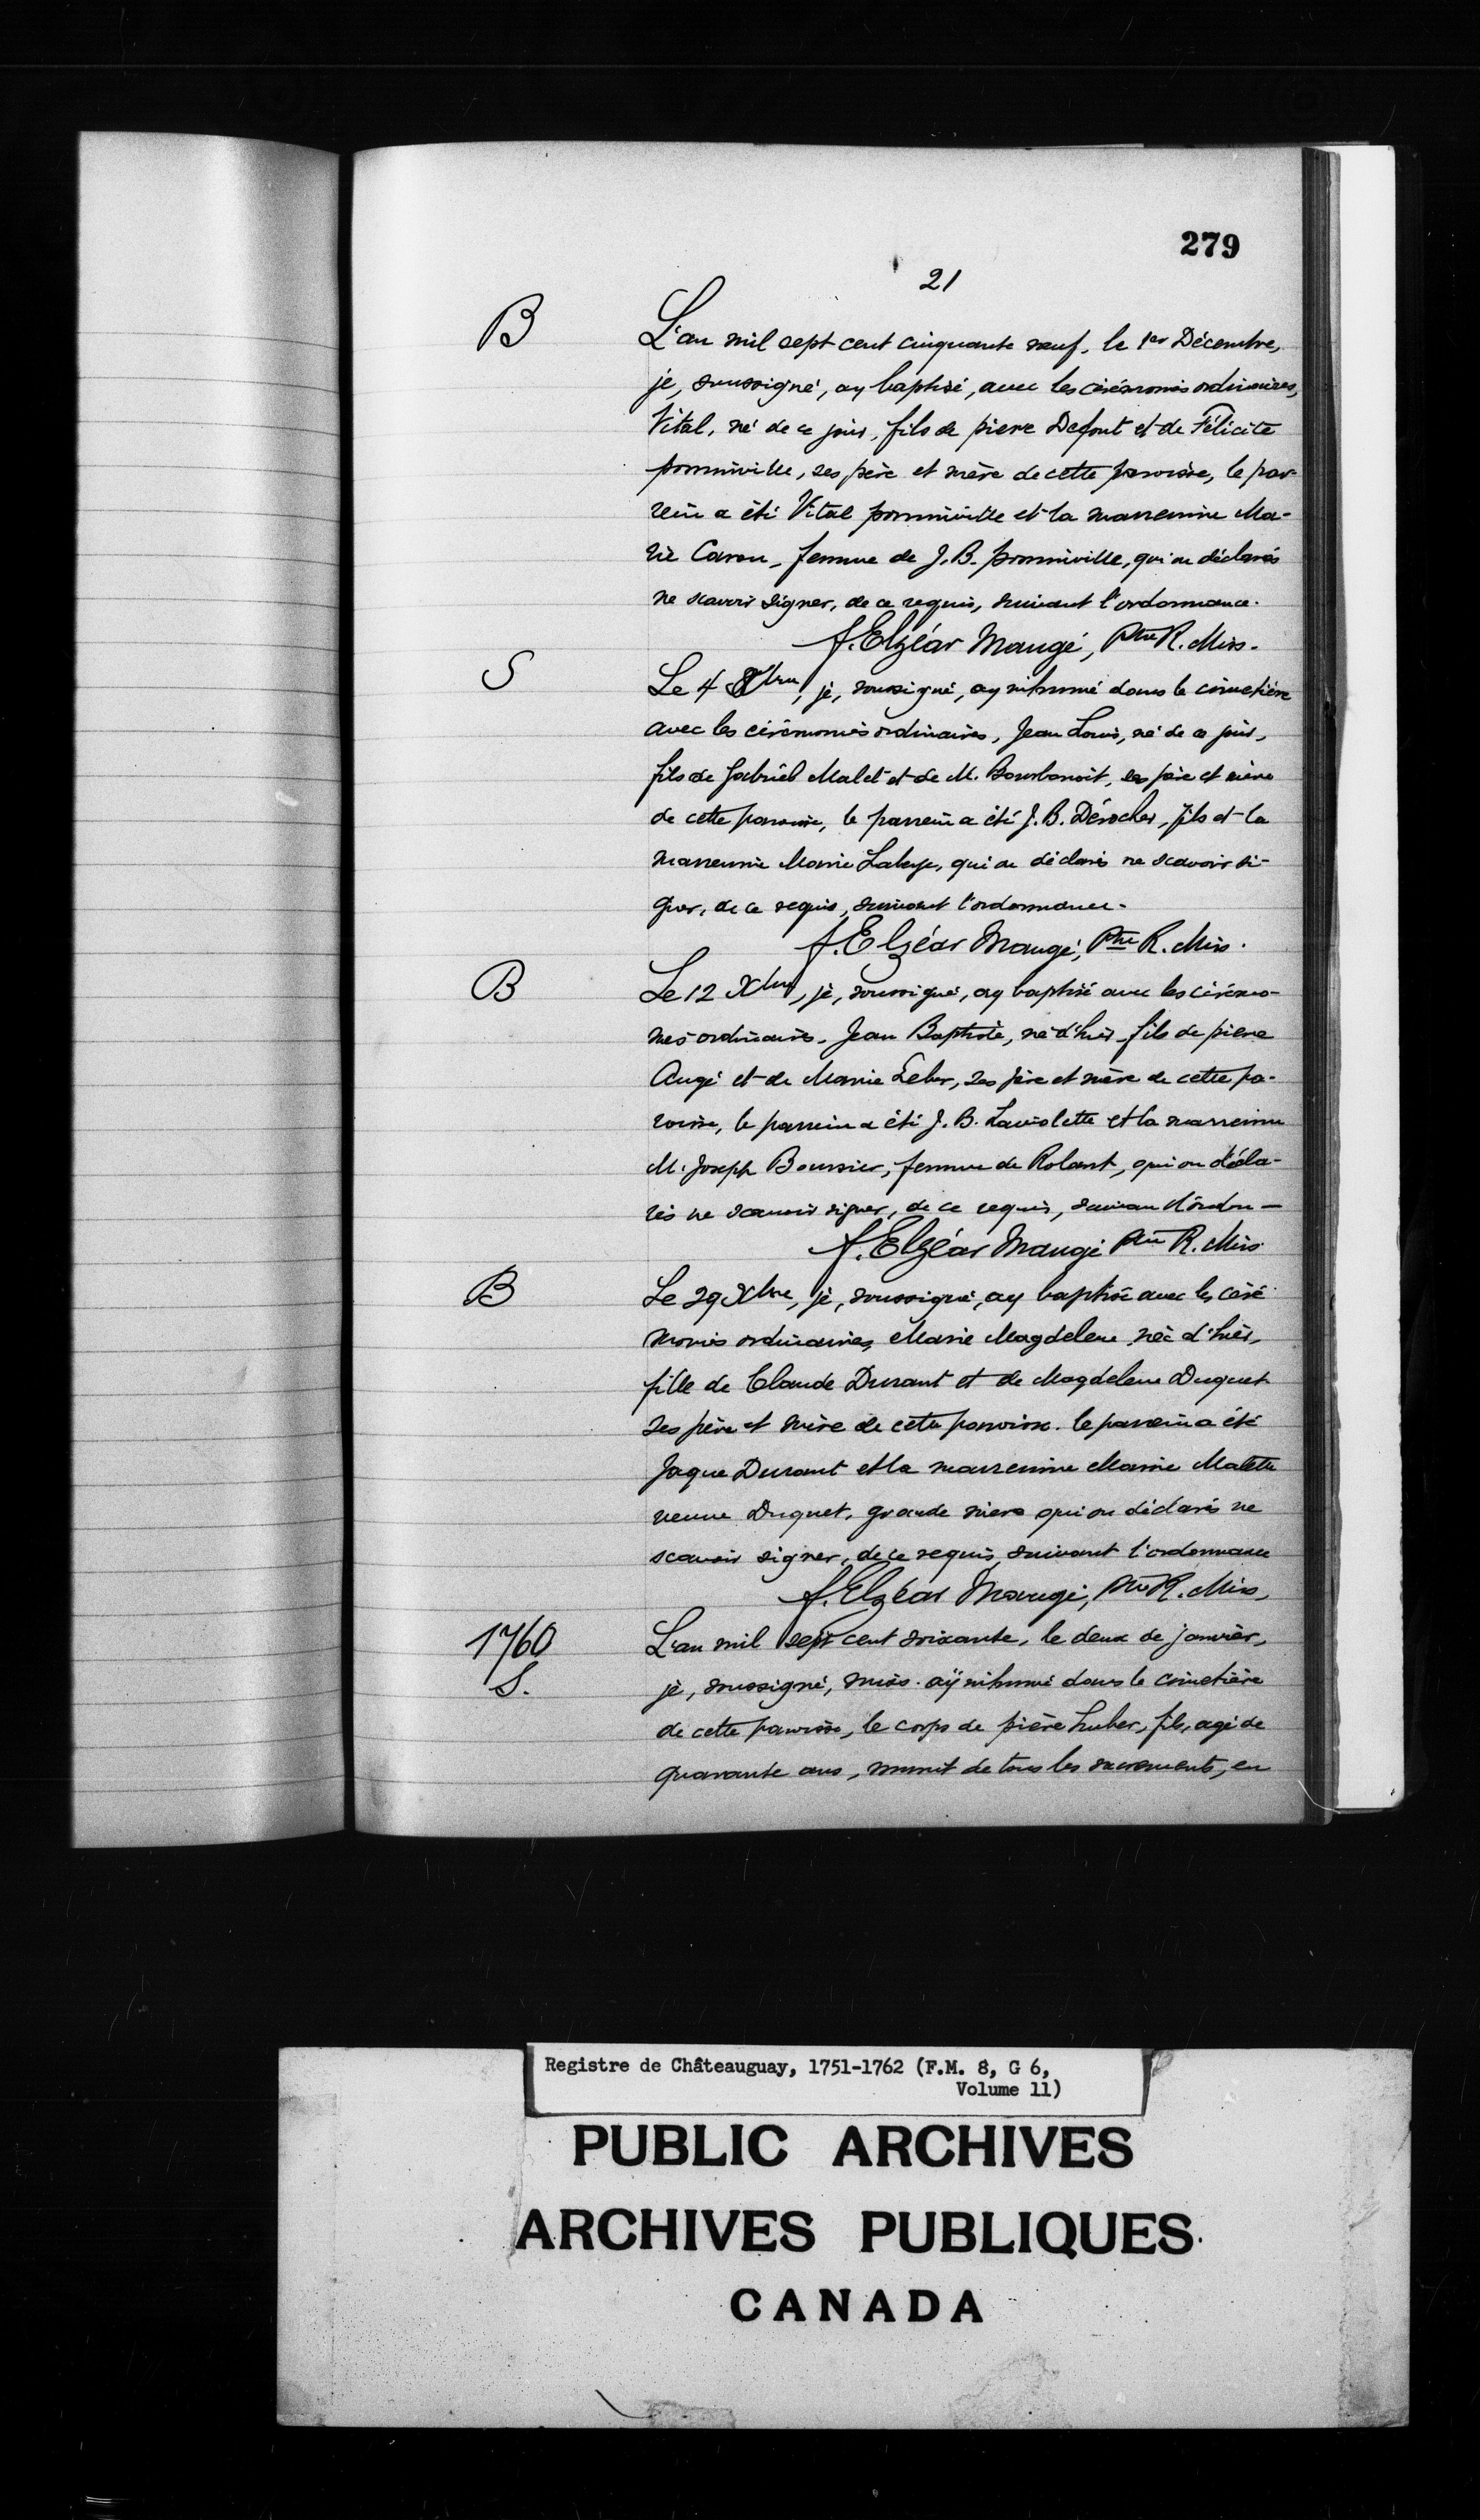 279
21
B
L'an mil sept cent cinquante neuf, le 1er Décembre,
je, soussigné, ay baptisé, avec les cérémonies ordinaires,
Vital, né de ce jour, fils de pierre Defont et de Félicite
prminville, ses père et mère de cette paroisse, le par-
rein a été Vital prminville et la marreinne Ma-
rie Caron, femme de J. B. prminville, qui on déclarés
ne scavoir signer, de ce requis, suivant l'ordonnance.
f. Elzéar Maugé, Ptre R. Miss.
S
Le 4 Xbre, je, soussigné, ay inhumé dans le cimetière
avec les cérémonies ordinaires, Jean Louis, né de ce jour,
fils de Gabriel Malet et de M. Bourbonoit, ses père et mère
de cette paroisse, le parrein a été J. B. Désocher, fils et la
marreinne Marie Laberge, qui on déclaré ne scavoir si-
gner, de ce requis, suivant l'ordonnance.
f. Elzéar Maugé, Ptre R. Miss.
B
Le 12 Xbre, je, soussigné, ay baptisé avec les cérémo-
nies ordinaires, Jean Baptiste, né d'hier, fils de pierre
Augé et de Marie Leber, ses père et mère de cette pa-
roisse, le parrein a été J. B. Laviolette et la marreinne
M. Joseph Boursier, femme de Robant, qui on décla-
rés ne scavoir signer, de ce requis, suivan l'ordon-
f. Elzéar Maugé Ptre R. Miss
B
Le 29 Xbre, je, soussigné, ay baptisé avec les céré
monies ordinaires, Marie Magdelene née d'hier,
fille de Claude Durant et de Magdelene Duquet
ses père et mère de cette paroisse. le parrein a été
Jaque Durant et la marreinne Marie Malette
veuve Duquet, grande mere qui on déclarés ne
scavoir signer, de ce requis, suivant l'ordonnance
f. Elzéar Maugé, Ptre R. Miss.
1760
S.
L'an mil sept cent soixante, le deux de janvier,
je, soussigné, miss. aÿ inhumé dans le cimetière
de cette paroisse, le corps de pière huber, fils, agé de
quarante ans, munit de tous les sacrements, en
Registre de Châteauguay, 1751-1762 (F.M. 8, G 6,
Volume 11)
PUBLIC ARCHIVES
ARCHIVES PUBLIQUES
CANADA